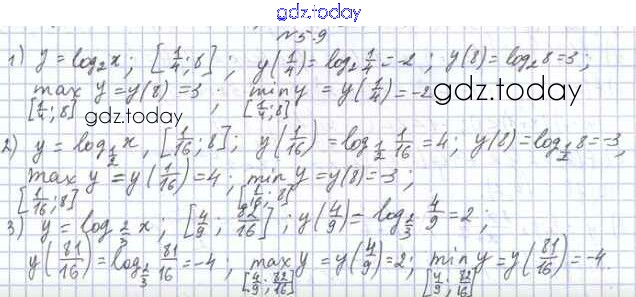 gdz.today
№5-9
1) y = log₂x; [1/4; 8]; y(1/4) = log₂ 1/4 = -2; y(8) = log₂ 8 = 3;
max y = y(8) = 3; min y = y(1/4) = -2
[1/4; 8] [1/4; 8]
gdz.today
gdz.today
2) y = log_{1/2} x, [1/16; 8]; y(1/16) = log_{1/2} 1/16 = 4; y(8) = log_{1/2} 8 = -3,
max y = y(1/16) = 4; min y = y(8) = -3;
[1/16; 8] [1/16; 8]
3) y = log_{2/3} x, [4/9; 82/16]; y(4/9) = log_{2/3} 4/9 = 2;
y(81/16) = log_{2/3} 81/16 = -4; max y = y(4/9) = 2; min y = y(81/16) = -4.
[4/9; 82/16] [4/9; 82/16]